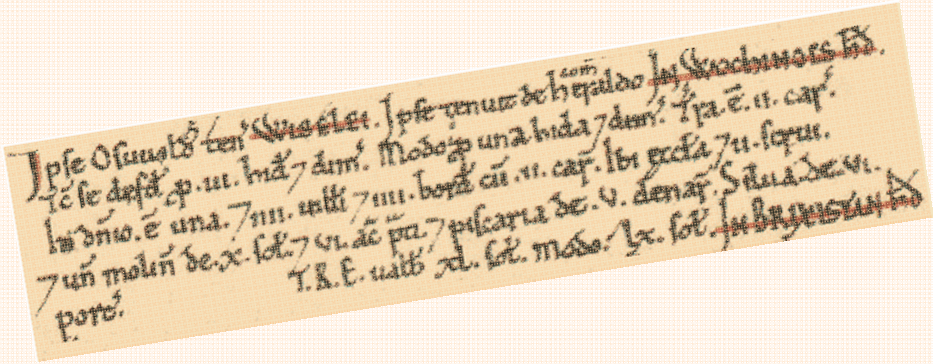 Ipse Osuuold' ten' . Ipse tenuit de herald̅o com̅ In Wochinges H̅D.
Tc̅ se def̅d' ꝓ . vi . hid' ⁊ dim̅. Modo ꝓ una hida ⁊ dim̅. Tr̅a . e̅ . ii . car'.
In dn̅io . e̅ una . ⁊ iiii . uilli ⁊ iiii . bord' cu̅ . ii . car'. Ibi æccl̅a ⁊ ii . serui.
⁊ un̅ molin̅ de . x . sol'. ⁊ vi . ac̅ pti . ⁊ piscaria de . v . denar'. Silua de . vi .
porc'. T.R.E. ualb' xl . sol'. Modo . lx . sol'.